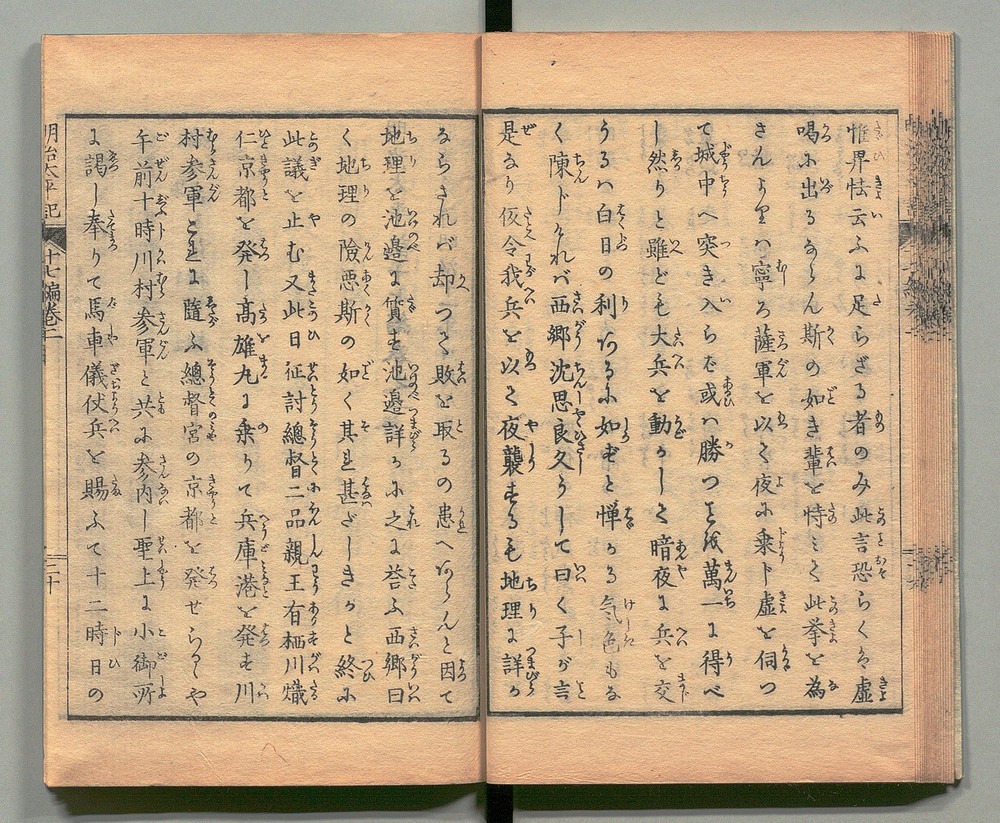 惟畀怯云ふに足らざる者のみ此言恐らくは虚
喝に出るならん斯の如き輩を恃ミて此挙を為
さんよりハ寧ろ薩軍を以て夜に乗ト虚を伺つ
て城中へ突き入らむ或ハ勝つを萬一に得べ
し然りと雖ども大兵を動かして暗夜に兵を交
うるハ白日の利あるに如ずと憚かる気色もな
く陳トければ西郷沈思良久うして曰く子が言
是なり仮令我兵を以て夜襲するも地理に詳か
ならざれバ却つて敗を取るの患へあらんと因て
地理を池邊に質す池邊詳かに之に荅ふ西郷曰
く地理の險悪斯の如く其れ甚だしきかと終に
此議を止む又此日征討總督二品親王有栖川熾
仁京都を発し高雄丸に乗りて兵庫港を発す川
村参軍これに隨ふ總督宮の京都を発せらるゝや
午前十時川村参軍と共に参内し聖上に小御所
に謁し奉りて馬車儀仗兵を賜ふて十二時日の
明治太平記
十七編巻二
二十